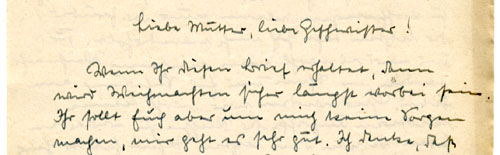 Liebe Mutter, liebe Geschwister!
Wenn Ihr diesen Brief erhaltet, dann
wird Weihnachten sicher längst vorbei sein.
Ihr sollt Euch aber um mich keine Sorgen
machen, mir geht es sehr gut. Ich denke, daß